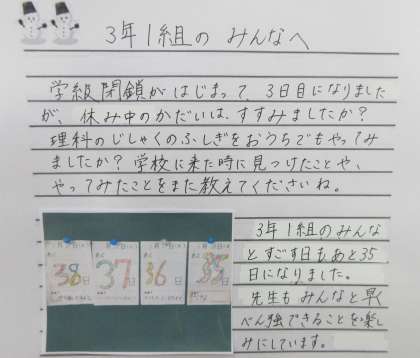 3年1組の みんなへ
学級閉鎖がはじまって、3日目になりました
が、休み中のかだいは、すすみましたか?
理科のじしゃくのふしぎをおうちでもやってみ
ましたか?学校に来た時に見つけたことや、
やってみたことをまた教えてくださいね。
38日
37日
36日
35
3年1組のみんな
とすごす日もあと35
日になりました。
先生もみんなと早く
べん強できることを楽し
みにしています。